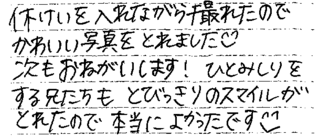 休けいを入れながら撮れたので
かわいい写真をとれました♡
次もおねがいします! ひとみしりを
する兄たちも とびっきりのスマイルが
とれたので 本当によかったです♡